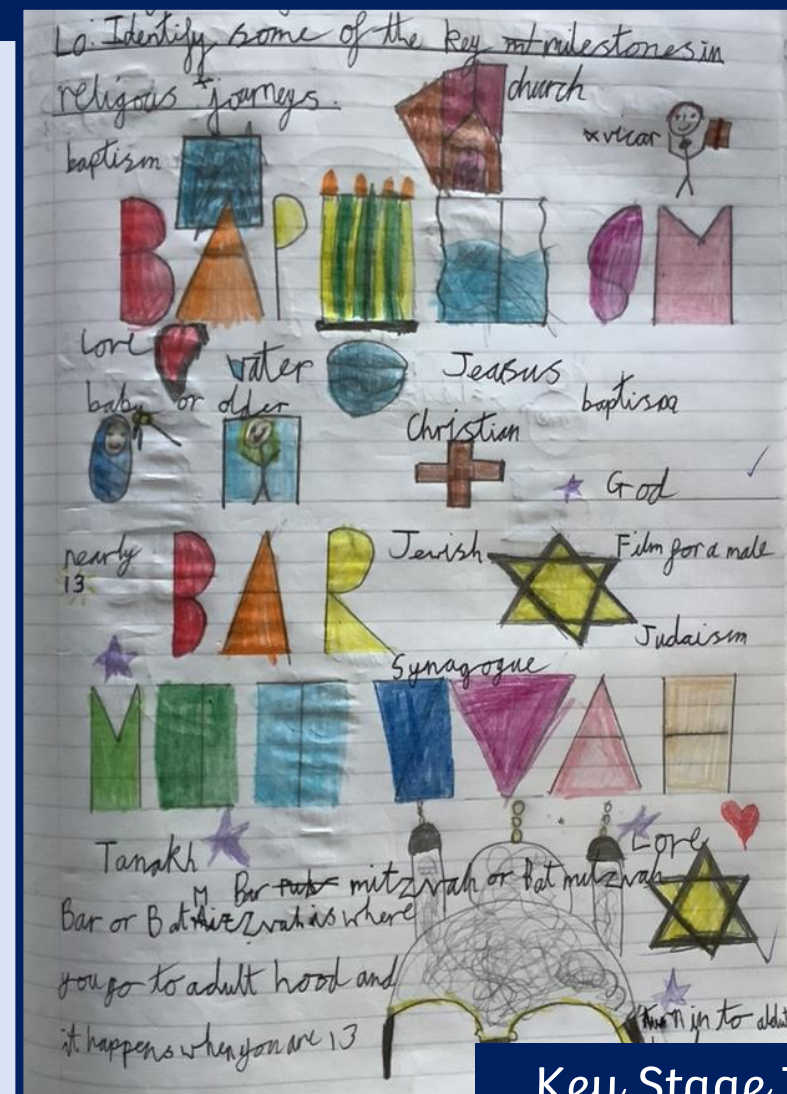 Lo: Identify some of the key milestones in
religous journeys.
church
vicar
baptism
BAPTISM
love
water
Jeasus
baby or older
baptism
Christian
God
nearly
13
BAR
Jewish
Film for a male
Judaism
Synagogue
MITZVAH
Tanakh
Love
Bar mitzvah or Bat mitzvah
Bar or Bat Mitzvah is where
you go to adult hood and
it happens when you are 13
turn in to
Key Stage